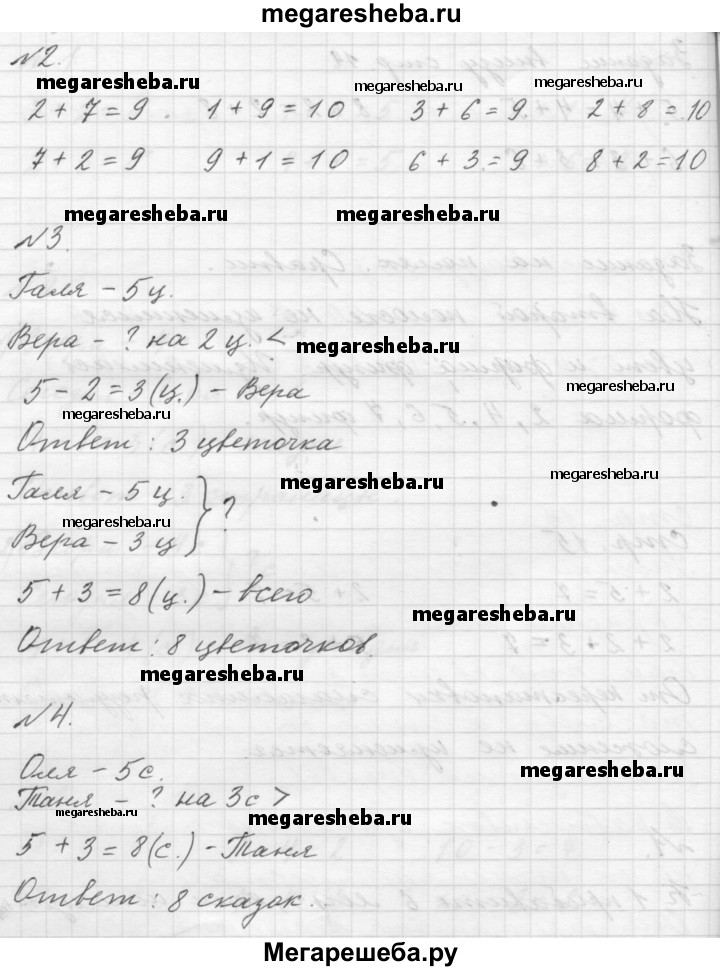 megaresheba.ru
№2.
megaresheba.ru megaresheba.ru megaresheba.ru
2 + 7 = 9 1 + 9 = 10 3 + 6 = 9 2 + 8 = 10
7 + 2 = 9 9 + 1 = 10 6 + 3 = 9 8 + 2 = 10
megaresheba.ru megaresheba.ru
№3.
Галя - 5 ц.
Вера - ? на 2 ц. <
megaresheba.ru
5 - 2 = 3 (ц.) - Вера
megaresheba.ru
megaresheba.ru
Ответ: 3 цветочка
megaresheba.ru megaresheba.ru
Галя - 5 ц. } ?
megaresheba.ru
Вера - 3 ц
5 + 3 = 8 (ц.) - всего
megaresheba.ru
Ответ: 8 цветочков
megaresheba.ru
№4.
Оля - 5 с.
megaresheba.ru
Таня - ? на 3 с >
megaresheba.ru megaresheba.ru
5 + 3 = 8 (с.) - Таня
Ответ: 8 сказок.
Мегарешеба.ру